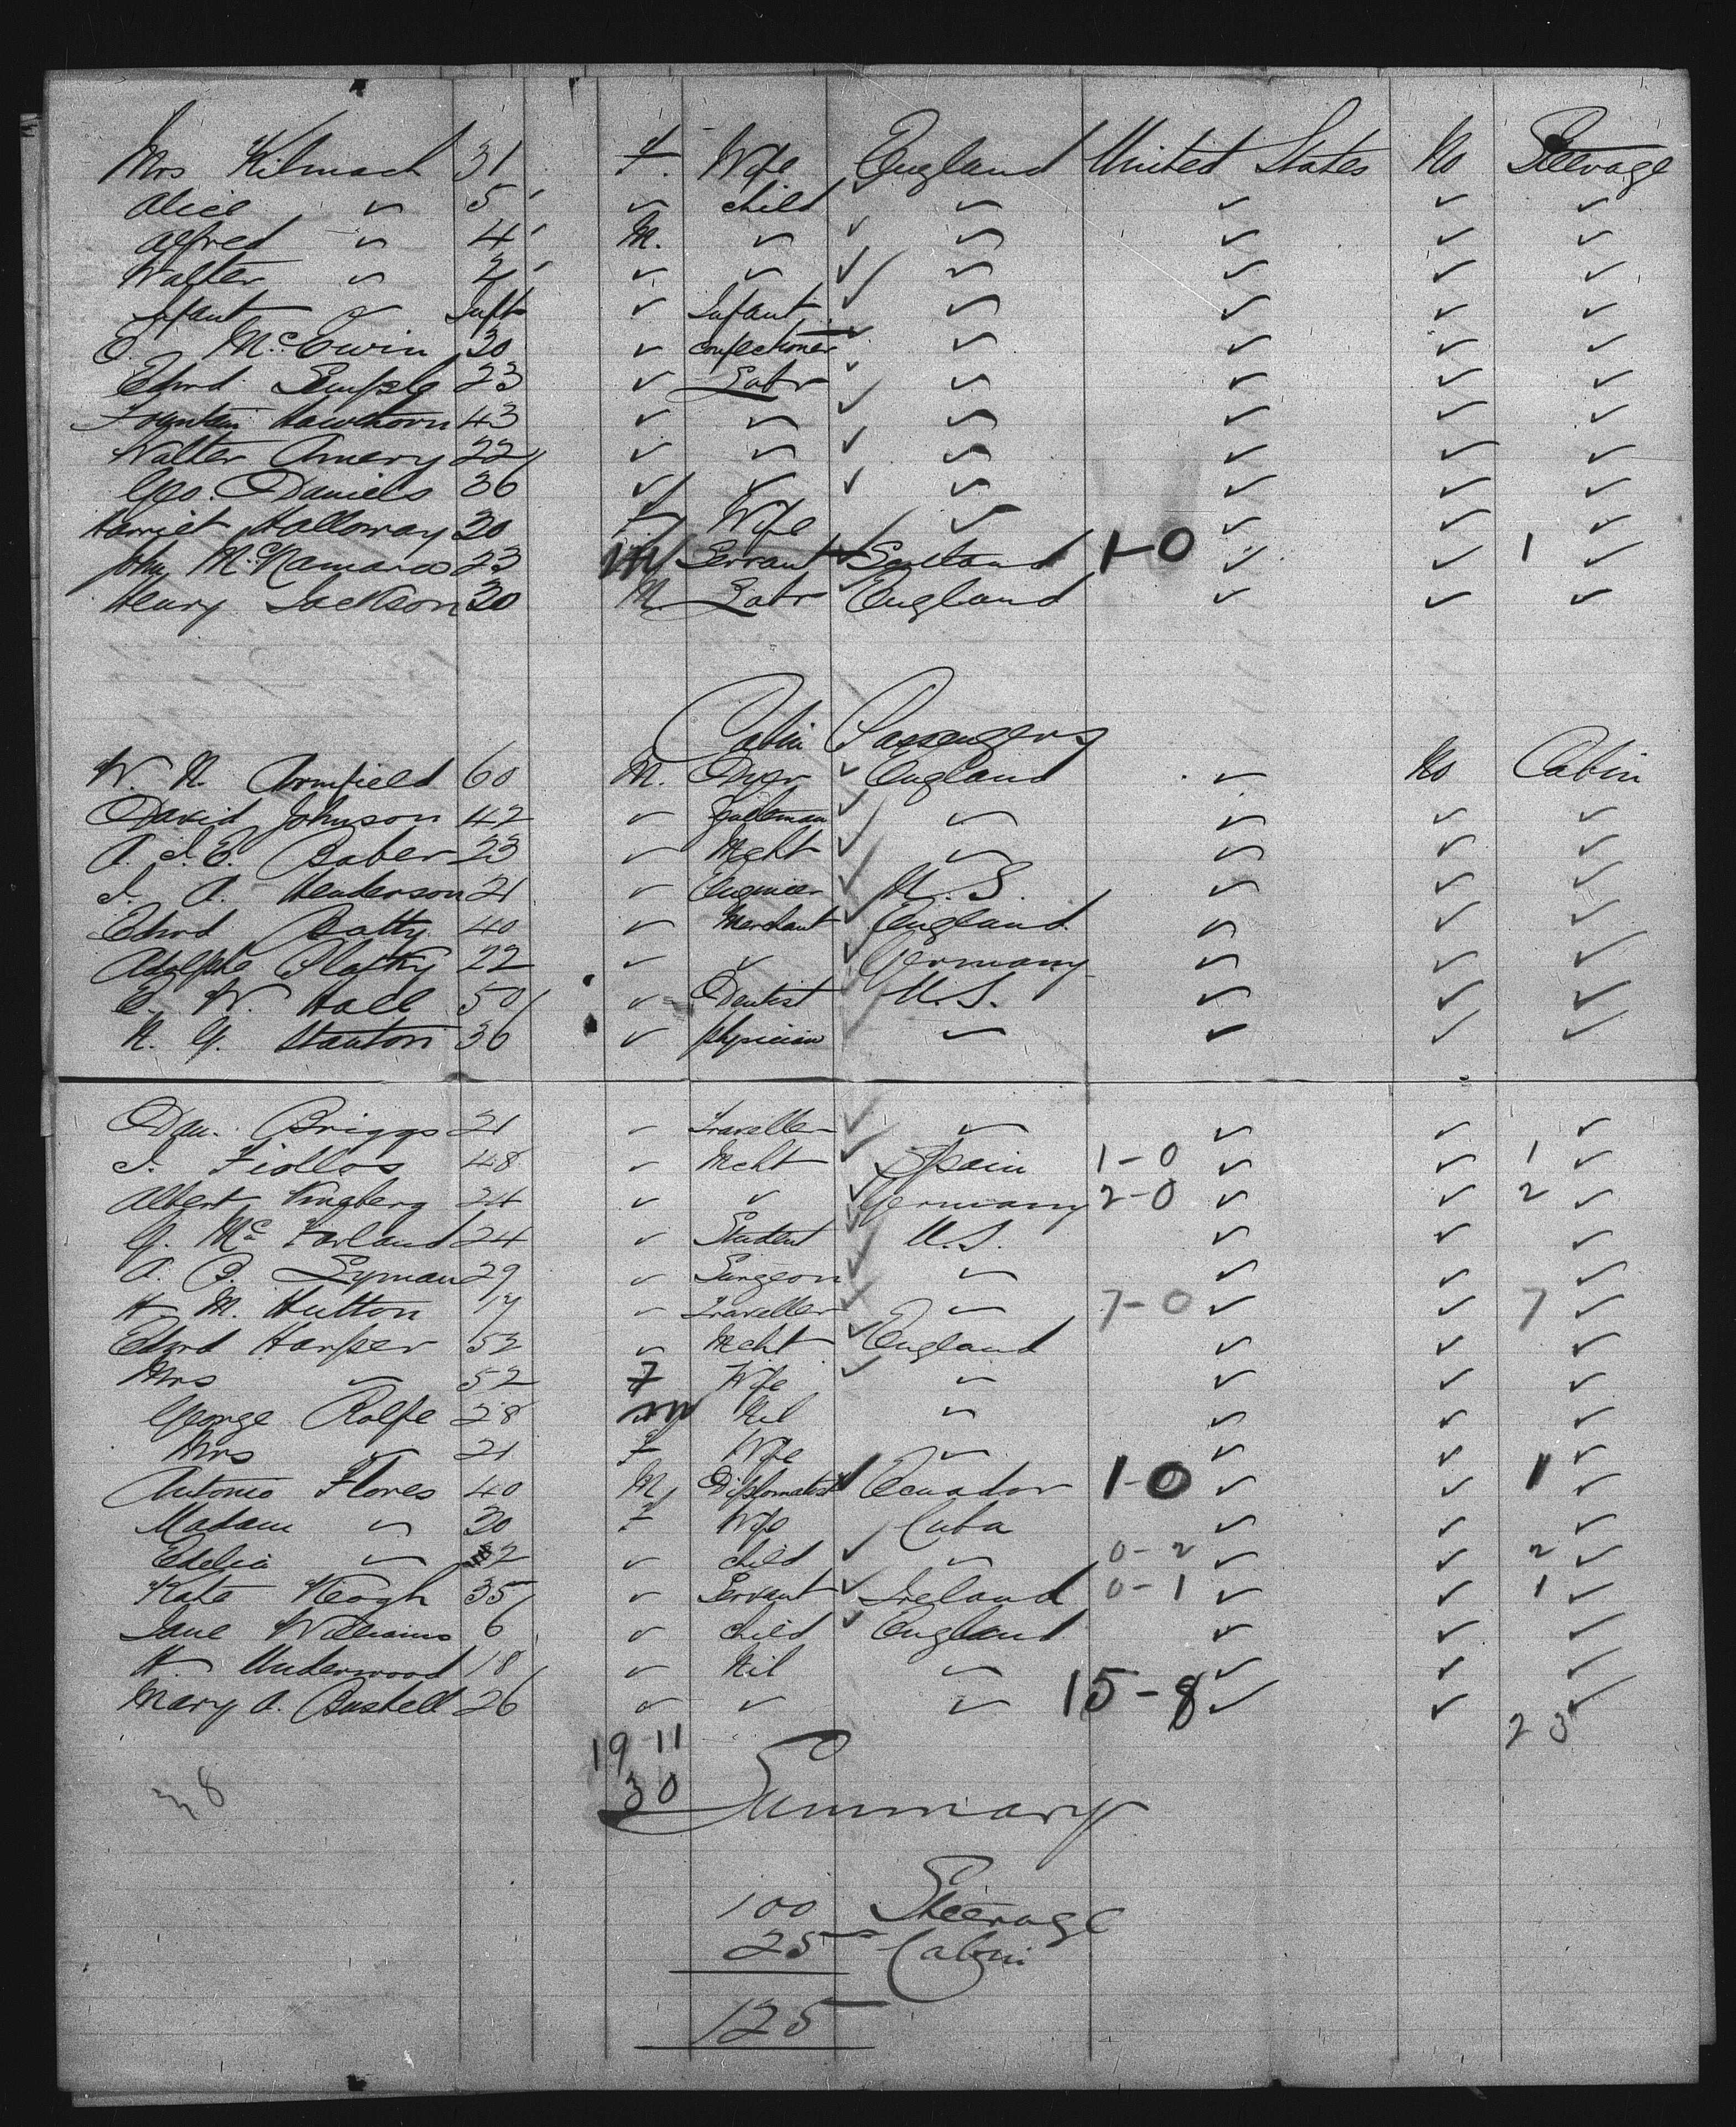 Mrs Kilmach 31 F. Wife England United States No Steerage
Alice " 5 " child " " " "
Alfred " 4 M. " " " " "
Walter " 2 " " " " " "
Infant " Inft " Infant " " " "
McEwin 30 " Confectioner " " " "
Edwd. Semple 23 " Labr " " " "
Fountain Hawthorn 43 " " " " " "
Walter Amery 22 " " " " " "
Geo. Daniels 36 " " " " " "
Harriet Halloway 30 F Wife " " " "
John McNamara 23 M Servant Scotland 1-0 " " 1 "
Henry Jackson 30 M Labr England " " "
Cabin Passengers
W. H. Armfield 60 M. England " No Cabin
David Johnson 42 " Gentleman " " " "
A. J. E. Baber 23 " Mcht " " " "
J. A. Henderson 21 " Engineer U.S. " " "
Edwd Batty 40 " Merchant England " " "
Adolphe 22 " " Germany " " "
E. W. Hall 50 " Dentist U.S. " " "
H. G. Stanton 36 " Physician " " " "
Dan. Briggs 21 " Traveller " " " "
J. Fiallos 48 " Mcht Spain 1-0 " " 1 "
Albert Kingberg 24 " " Germany 2-0 " " 2 "
G. McFarland 24 " Student U.S. " " "
A. P. Lyman 29 " Surgeon " " " "
H. M. Hutton 17 " Traveller " 7-0 " " 7 "
Edwd Harper 52 " Mcht England " " "
Mrs " 52 F Wife " " " "
George Rolfe 28 M Nil " " " "
Mrs " 21 F Wife " " " "
Antonio Flores 40 M Diplomatist Ecuador 1-0 " " 1 "
Madam " 30 F Wife Cuba " " "
Edelia " 2 " child " 0-2 " " 2 "
Kate Keogh 35 " Servant Ireland 0-1 " " 1 "
Jane Williams 6 " child England " " "
H. Underwood 18 " Nil " " " "
Mary A. Bushell 26 " " " 15-8 " " "
23
19 11
30
38
Summary
100 Steerage
25 Cabin
125